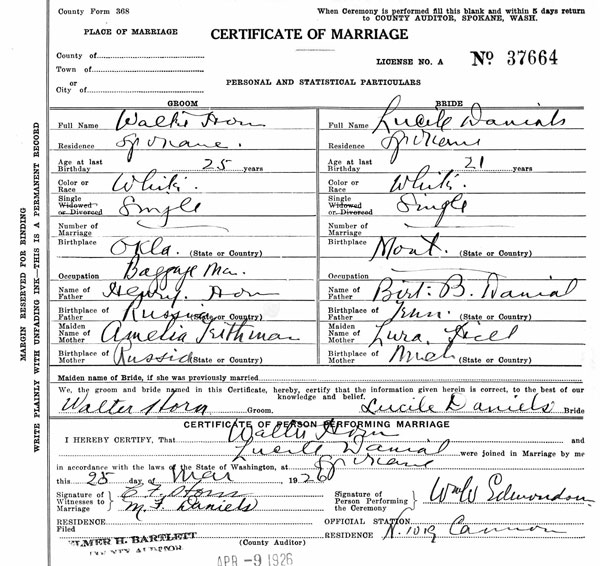 County Form 368
When Ceremony is performed fill this blank and within 5 days return
to COUNTY AUDITOR, SPOKANE, WASH.
PLACE OF MARRIAGE
CERTIFICATE OF MARRIAGE
County of
Town of
or
City of
LICENSE NO. A No 37664
PERSONAL AND STATISTICAL PARTICULARS
MARGIN RESERVED FOR BINDING
WRITE PLAINLY WITH UNFADING INK—THIS IS A PERMANENT RECORD
GROOM BRIDE
Full Name Walter Horn Full Name Lucile Danials
Residence Spokane. Residence Spokane
Age at last Birthday 25 years Age at last Birthday 21 years
Color or Race White. Color or Race White.
Single Widowed or Divorced Single Single Widowed or Divorced Single
Number of Marriage Number of Marriage
Birthplace Okla. (State or Country) Birthplace Mont. (State or Country)
Occupation Baggage Man. Occupation
Name of Father Henry Horn Name of Father Birt. B. Danial
Birthplace of Father Russia (State or Country) Birthplace of Father Tenn. (State or Country)
Maiden Name of Mother Amelia Maiden Name of Mother Lura Hill
Birthplace of Mother Russia (State or Country) Birthplace of Mother Mich (State or Country)
Maiden name of Bride, if she was previously married
We, the groom and bride named in this Certificate, hereby, certify that the information given herein is correct, to the best of our
knowledge and belief.
Walter Horn Groom. Lucile Daniels Bride
CERTIFICATE OF PERSON PERFORMING MARRIAGE
I HEREBY CERTIFY, That Walter Horn and
Lucile Danial were joined in Marriage by me
in accordance with the laws of the State of Washington, at Spokane
this 25 day of Mar 1926
Signature of Witnesses to Marriage E. F. Horn
M. F. Daniels
Signature of Person Performing the Ceremony Wm W Edmondson
RESIDENCE OFFICIAL STATION
Filed RESIDENCE Cannon
ELMER H. BARTLETT
COUNTY AUDITOR
(County Auditor)
APR -9 1926